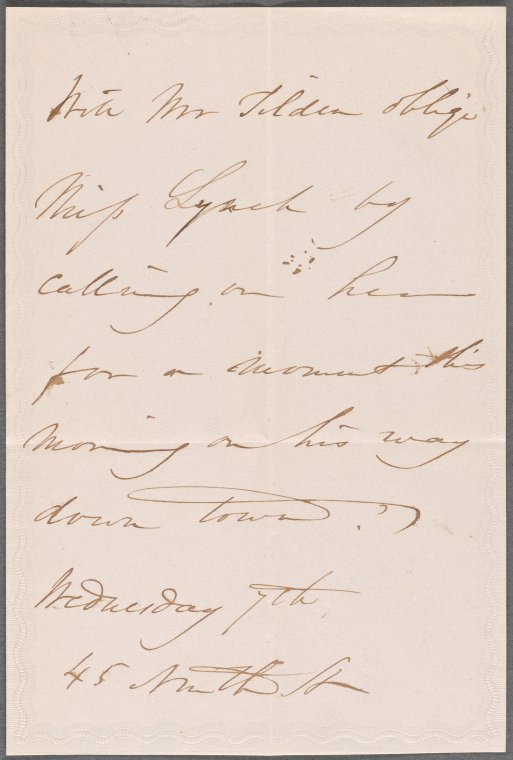 Will Mr Tilden oblige
Miss Lynch by
calling on her
for a moment this
morning on his way
down town?
Wednesday 7th
45 Ninth St